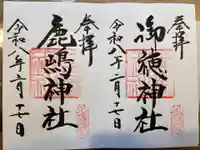 奉拝
御穂神社
令和八年二月十七日
奉拝
鹿嶋神社
令和八年二月十七日